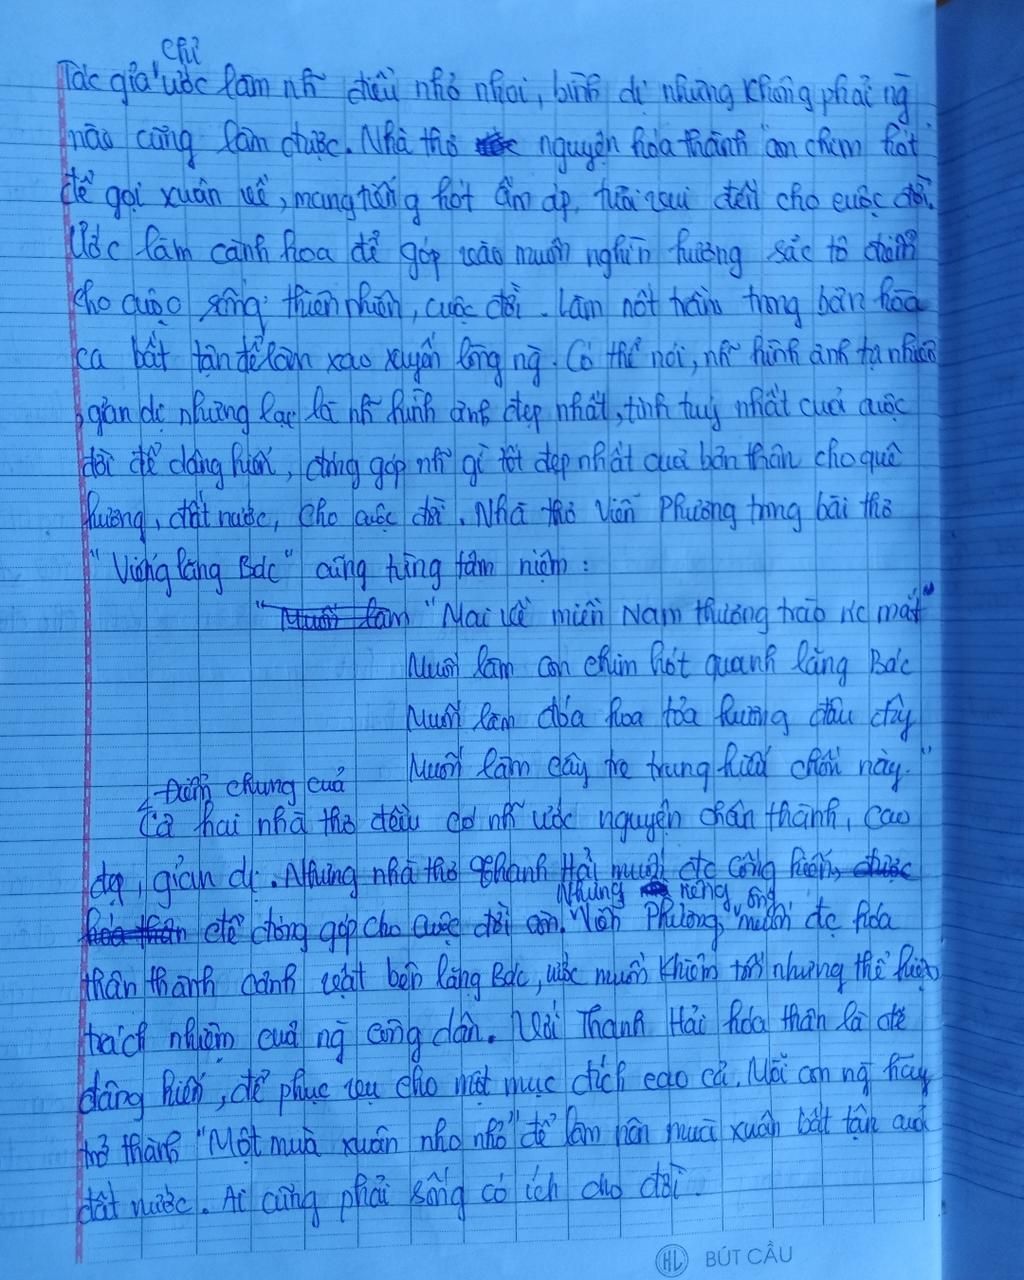 chỉ
Tác giả ước làm nh~ điều nhỏ nhoi, bình dị nhưng không phải ng`
nào cũng làm được. Nhà thơ nguyện hóa thành con chim hót
để gọi xuân về, mang tiếng hót ấm áp, tươi vui đến cho cuộc đời.
Ước làm cành hoa để góp vào muôn nghìn hương sắc tô điểm
cho cuộc sống, thiên nhiên, cuộc đời. Làm nốt trầm trong bản hòa
ca bất tận để làm xao xuyến lòng ng`. Có thể nói, nh~ hình ảnh tự nhiên
giản dị nhưng lại là nh~ hình ảnh đẹp nhất, tinh tuý nhất của cuộc
đời để dâng hiến, đóng góp nh~ gì tốt đẹp nhất của bản thân cho quê
hương, đất nước, cho cuộc đời. Nhà thơ Viễn Phương trong bài thơ
"Viếng lăng Bác" cũng từng tâm niệm:
"Mai về miền Nam thương trào nc mắt"
Muốn làm con chim hót quanh lăng Bác
Muốn làm đóa hoa tỏa hương đâu đây
Muốn làm cây tre trung hiếu chốn này."
Điểm chung của
Cả hai nhà thơ đều có nh~ ước nguyện chân thành, cao
đẹp, giản dị. Nhưng nhà thơ Thanh Hải muốn đc cống hiến,
Nhưng riêng ông
để đóng góp cho cuộc đời còn Viễn Phương, muốn đc hóa
thân thành cảnh vật bên lăng Bác, ước muốn khiêm tốn nhưng thể hiện
trách nhiệm của ng` công dân. Với Thanh Hải hóa thân là để
dâng hiến, để phục vụ cho một mục đích cao cả. Mỗi con ng` hãy
trở thành "Một mùa xuân nho nhỏ" để làm nên mùa xuân bất tận của
đất nước. Ai cũng phải sống có ích cho đời.
HL BÚT CẦU